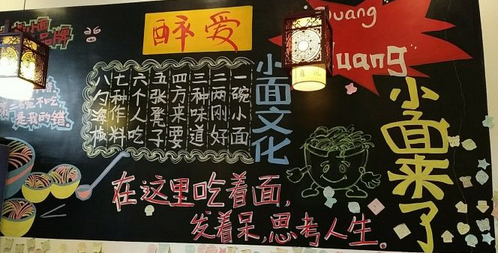 醉爱
Duang
uang
小面文化
一碗小面
二两刚好
三种味道
四方来耍
五张凳子
六个人吃
七种作料
八勺
小面来了
碗不吃
是我的错
在这里吃着面,
发着呆,思考人生。